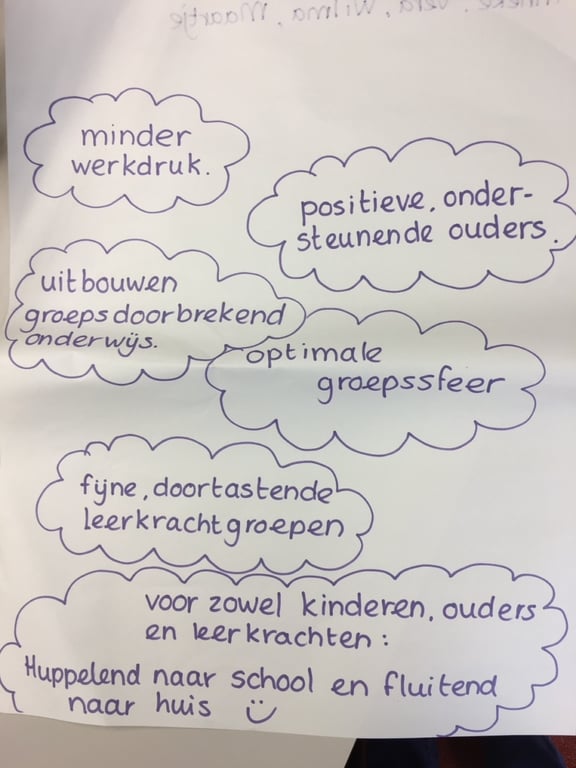 Vera, Wilma, Maartje
minder
werkdruk.
positieve, onder-
steunende ouders.
uitbouwen
groepsdoorbrekend
onderwijs.
optimale
groepssfeer
fijne, doortastende
leerkrachtgroepen
voor zowel kinderen, ouders
en leerkrachten:
Huppelend naar school en fluitend
naar huis